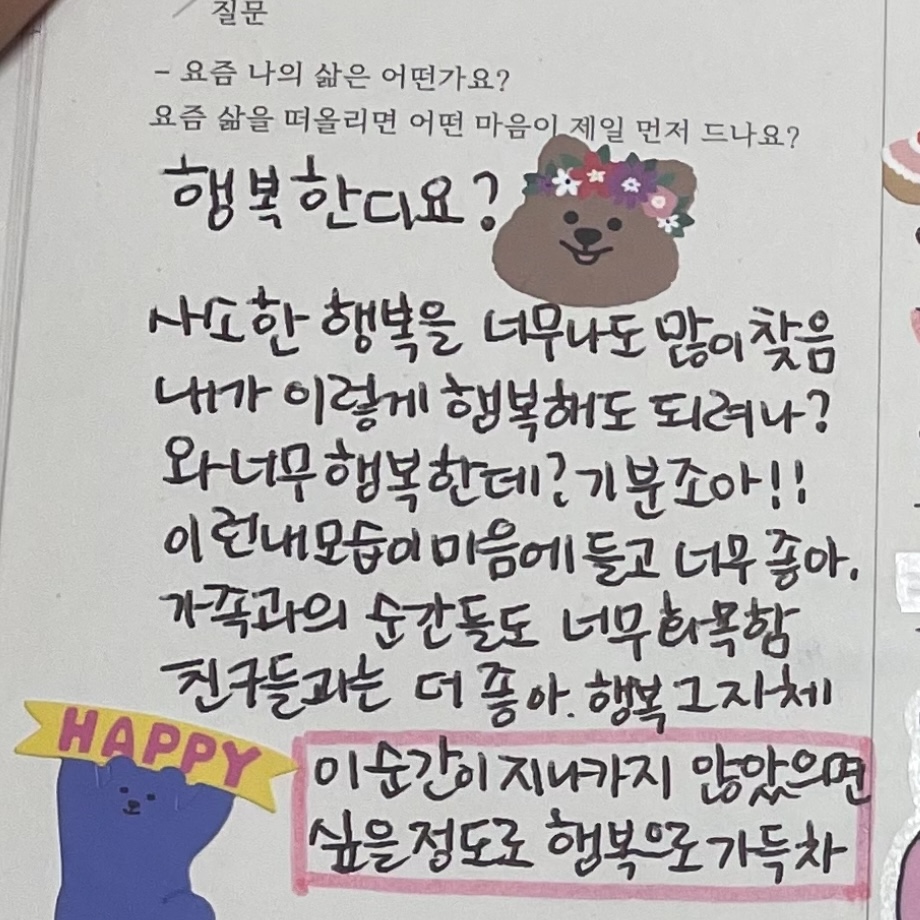 질문
- 요즘 나의 삶은 어떤가요?
요즘 삶을 떠올리면 어떤 마음이 제일 먼저 드나요?
행복한디요?
사소한 행복을 너무나도 많이 찾음
내가 이렇게 행복해도 되려나?
와 너무 행복한데? 기분 조아!!
이런 내 모습이 마음에 들고 너무 좋아.
가족과의 순간들도 너무 화목함
친구들과는 더 좋아. 행복 그 자체
HAPPY
이 순간이 지나가지 않았으면
싶을 정도로 행복으로 가득차